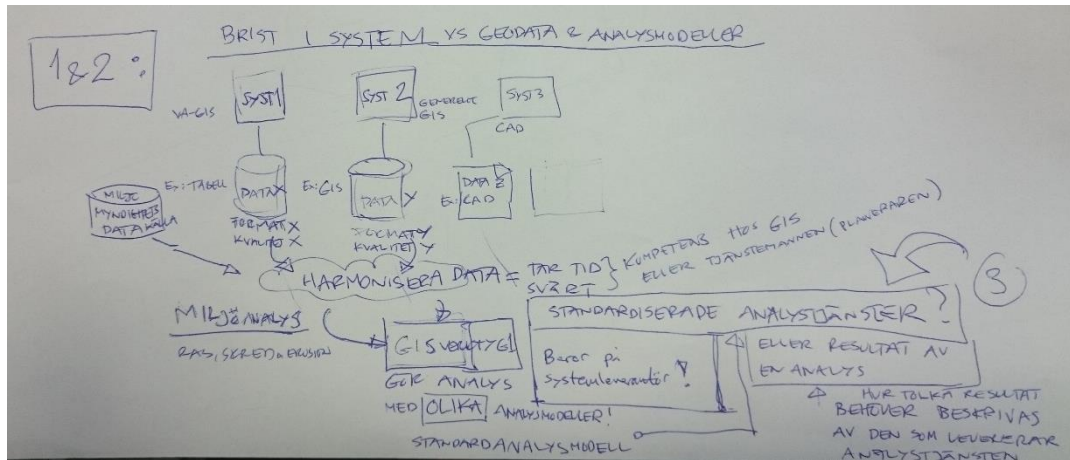 BRIST I SYSTEM VS GEODATA & ANALYSMODELLER
1&2:
VA-GIS
SYST1
SYST 2
GENERELLT GIS
SYST3
CAD
MILJÖ
MYNDIGHETS
DATAKÄLLA
Ex: TABELL
DATA X
FORMAT X
KVALITET X
Ex: GIS
DATA Y
FORMAT Y
KVALITET Y
DATA Z
Ex: CAD
HARMONISERA DATA = TAR TID
SVÅRT
KOMPETENS HOS GIS
ELLER TJÄNSTEMANNEN (PLANERAREN)
3
MILJÖANALYS
RAS, SKRED & EROSION
GIS VERKTYG
GÖR ANALYS
MED OLIKA ANALYSMODELLER!
STANDARDANALYSMODELL
STANDARDISERADE ANALYSTJÄNSTER?
Beror på
systemleverantör!
ELLER RESULTAT AV
EN ANALYS
HUR TOLKA RESULTAT
BEHÖVER BESKRIVAS
AV DEN SOM LEVERERAR
ANALYSTJÄNSTEN